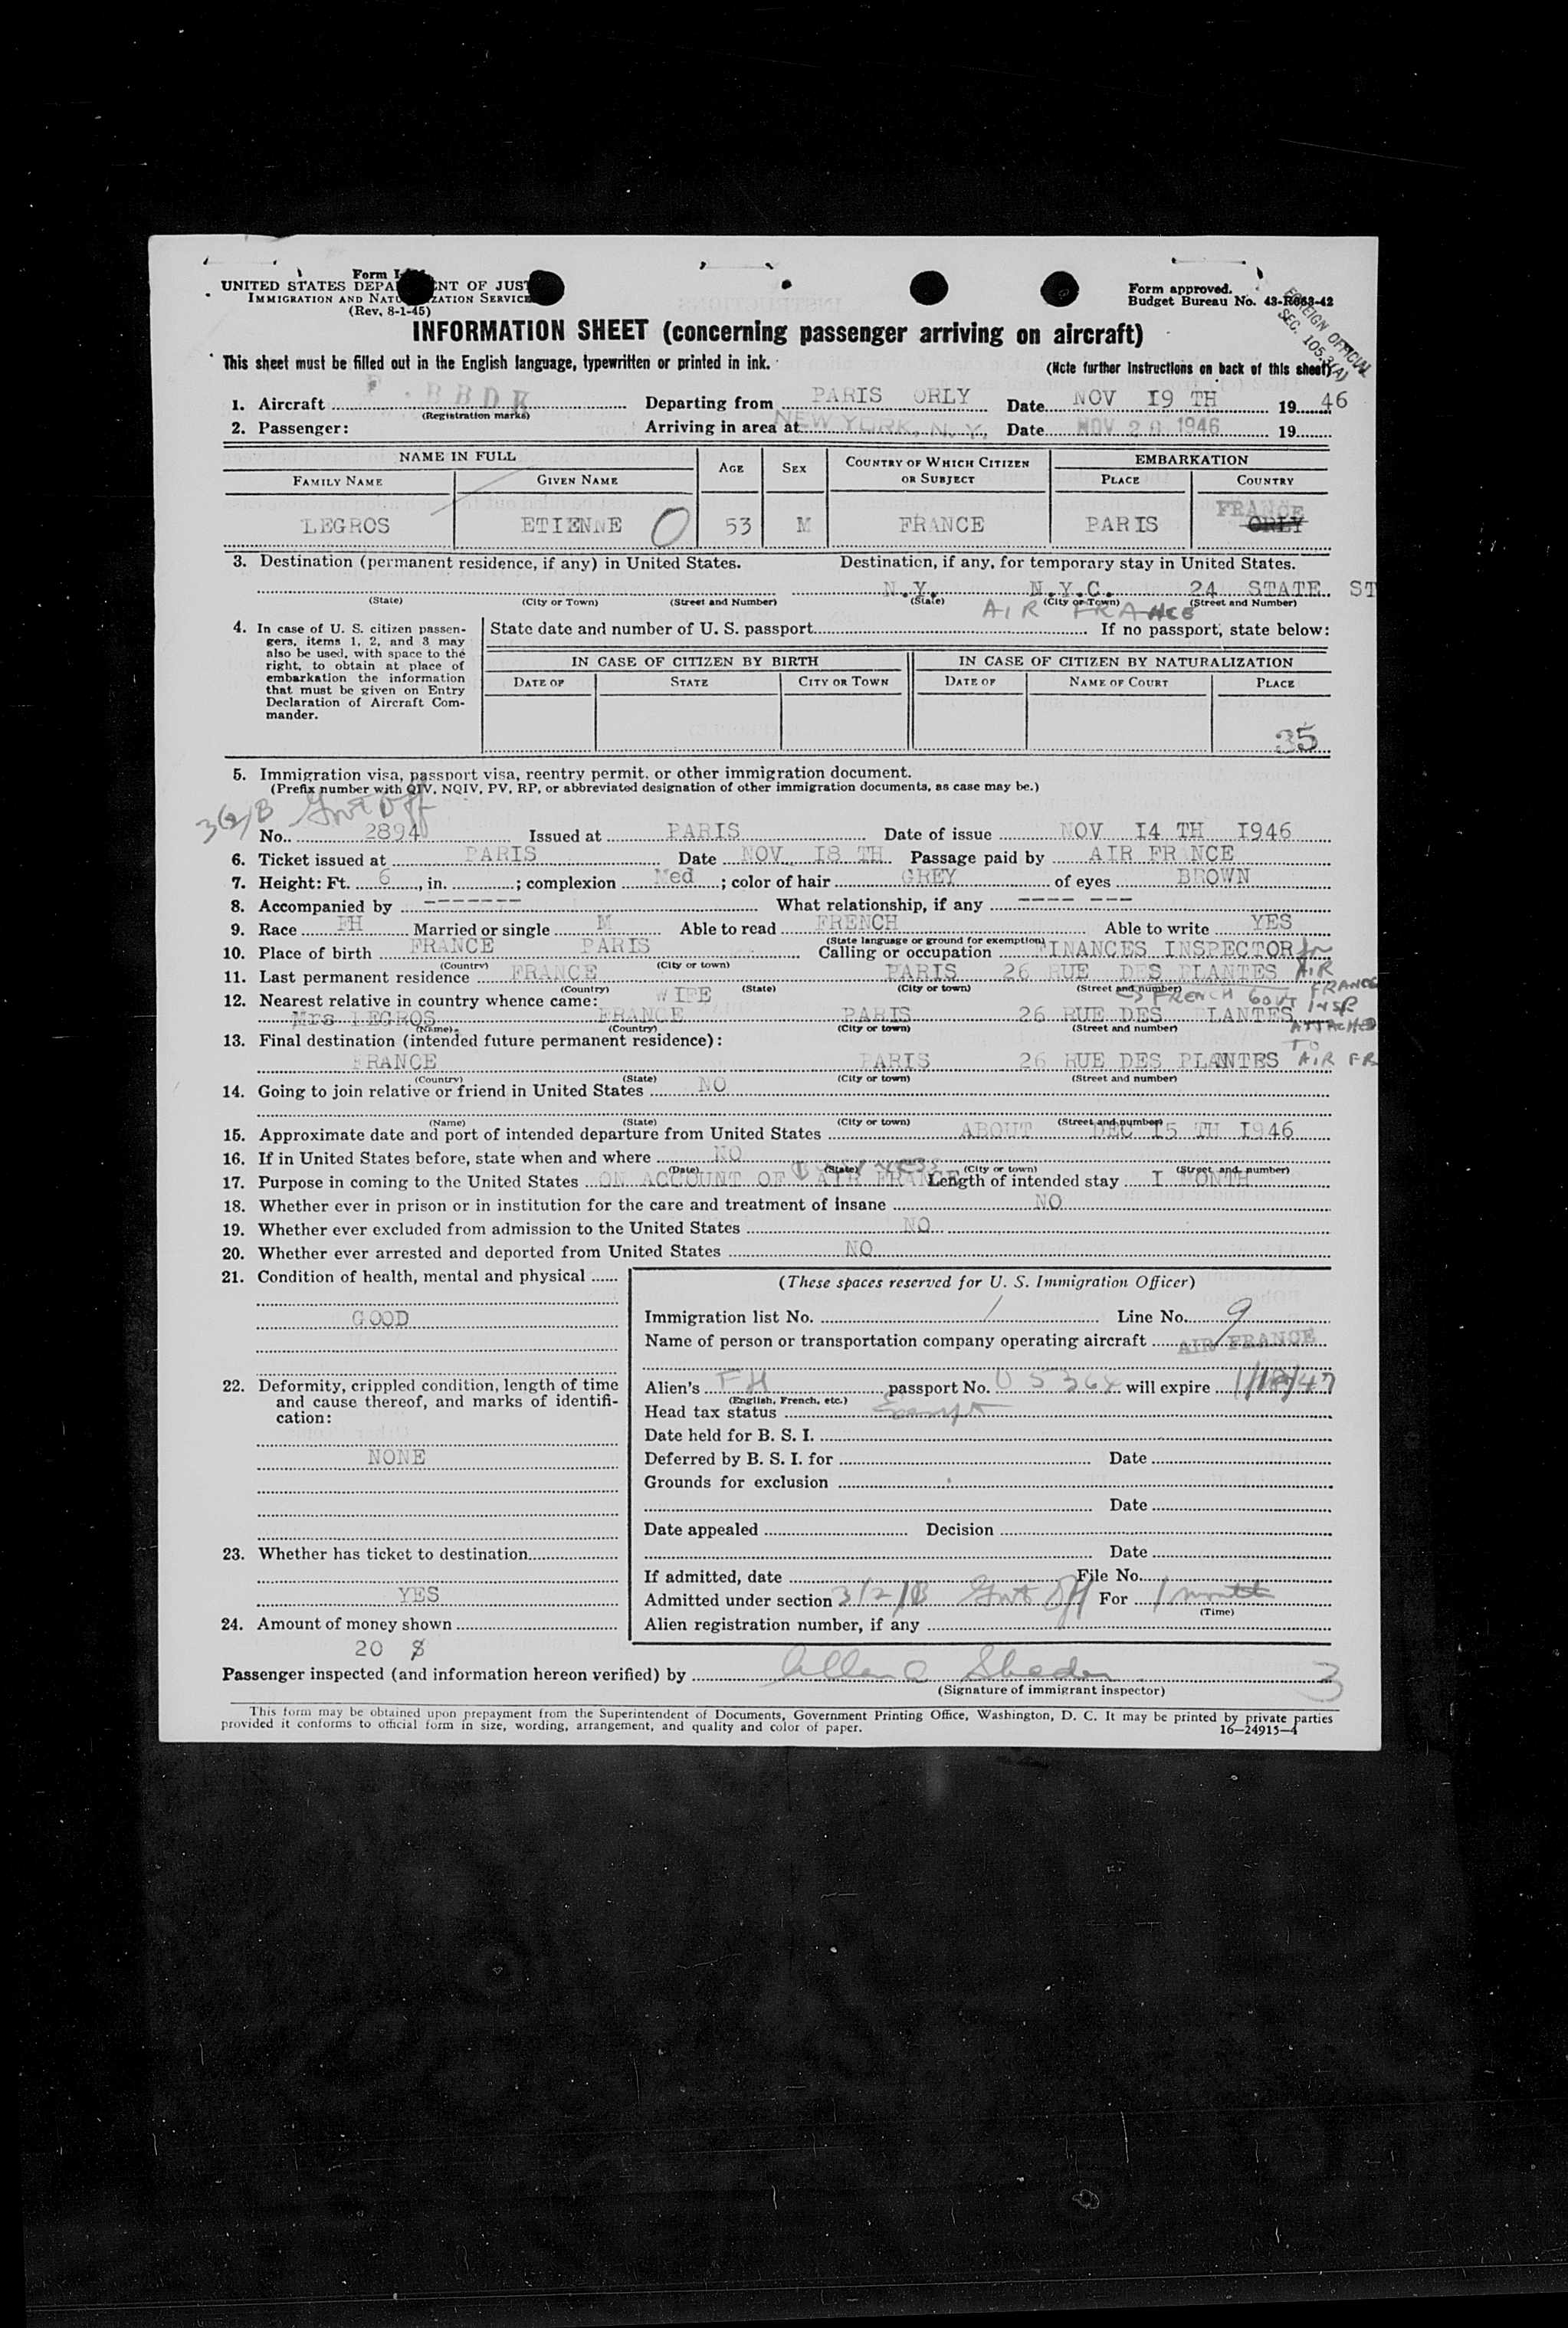 UNITED STATES DEPA NT OF JUST
IMMIGRATION AND NATU ZATION SERVICE
(Rev. 8-1-45)
Form approved.
Budget Bureau No. 43-R063-42
FOREIGN OFFICIAL
SEC. 105.3(A)
INFORMATION SHEET (concerning passenger arriving on aircraft)
This sheet must be filled out in the English language, typewritten or printed in ink.
(Note further instructions on back of this sheet)
1. Aircraft Departing from PARIS ORLY Date NOV I9 TH 19 46
(Registration marks)
2. Passenger: Arriving in area at NEW YORK, N. Y. Date NOV 20 1946 19
NAME IN FULL AGE SEX COUNTRY OF WHICH CITIZEN OR SUBJECT EMBARKATION
FAMILY NAME GIVEN NAME PLACE COUNTRY
FRANCE
LEGROS ETIENNE 0 53 M FRANCE PARIS ORLY
3. Destination (permanent residence, if any) in United States. Destination, if any, for temporary stay in United States.
N.Y. N.Y.C. 24 STATE ST
(State) (City or Town) (Street and Number) (State) (City or Town) (Street and Number)
AIR FRANCE
4. In case of U. S. citizen passen-
gers, items 1, 2, and 3 may
also be used, with space to the
right, to obtain at place of
embarkation the information
that must be given on Entry
Declaration of Aircraft Com-
mander.
State date and number of U. S. passport If no passport, state below:
IN CASE OF CITIZEN BY BIRTH IN CASE OF CITIZEN BY NATURALIZATION
DATE OF STATE CITY OR TOWN DATE OF NAME OF COURT PLACE
35
5. Immigration visa, passport visa, reentry permit, or other immigration document.
(Prefix number with QIV, NQIV, PV, RP, or abbreviated designation of other immigration documents, as case may be.)
3(2)B Govt Off
No. 2894 Issued at PARIS Date of issue NOV I4 TH I946
6. Ticket issued at PARIS Date NOV I8 TH Passage paid by AIR FRANCE
7. Height: Ft. 6, in. ; complexion Med ; color of hair GREY of eyes BROWN
8. Accompanied by ------- What relationship, if any ---- ---
9. Race FH Married or single M Able to read FRENCH Able to write YES
(State language or ground for exemption)
10. Place of birth FRANCE PARIS Calling or occupation FINANCES INSPECTOR for
(Country) (City or town)
11. Last permanent residence FRANCE PARIS 26 RUE DES PLANTES AIR FRANCE
(Country) (State) (City or town) (Street and number)
FRENCH GOVT INSP ATTACHED TO AIR FR
12. Nearest relative in country whence came: WIFE
Mrs LEGROS FRANCE PARIS 26 RUE DES PLANTES
(Name) (Country) (City or town) (Street and number)
13. Final destination (intended future permanent residence):
FRANCE PARIS 26 RUE DES PLANTES
(Country) (State) (City or town) (Street and number)
14. Going to join relative or friend in United States NO
(Name) (State) (City or town) (Street and number)
15. Approximate date and port of intended departure from United States ABOUT DEC I5 TH I946
16. If in United States before, state when and where NO
(Date) (State) (City or town) (Street and number)
BUSINESS
17. Purpose in coming to the United States ON ACCOUNT OF AIR FRANCE Length of intended stay I MONTH
18. Whether ever in prison or in institution for the care and treatment of insane NO
19. Whether ever excluded from admission to the United States NO
20. Whether ever arrested and deported from United States NO
21. Condition of health, mental and physical
GOOD
22. Deformity, crippled condition, length of time
and cause thereof, and marks of identifi-
cation:
NONE
23. Whether has ticket to destination
YES
24. Amount of money shown
20 $
(These spaces reserved for U. S. Immigration Officer)
Immigration list No. 1 Line No. 9
Name of person or transportation company operating aircraft AIR FRANCE
Alien's FH passport No. will expire
(English, French, etc.)
Head tax status Exempt
Date held for B. S. I.
Deferred by B. S. I. for Date
Grounds for exclusion
Date
Date appealed Decision
Date
If admitted, date File No.
Admitted under section 3/2/B Govt Off For 1 month
(Time)
Alien registration number, if any
Passenger inspected (and information hereon verified) by
(Signature of immigrant inspector)
3
This form may be obtained upon prepayment from the Superintendent of Documents, Government Printing Office, Washington, D. C. It may be printed by private parties
provided it conforms to official form in size, wording, arrangement, and quality and color of paper.
16—24915-4